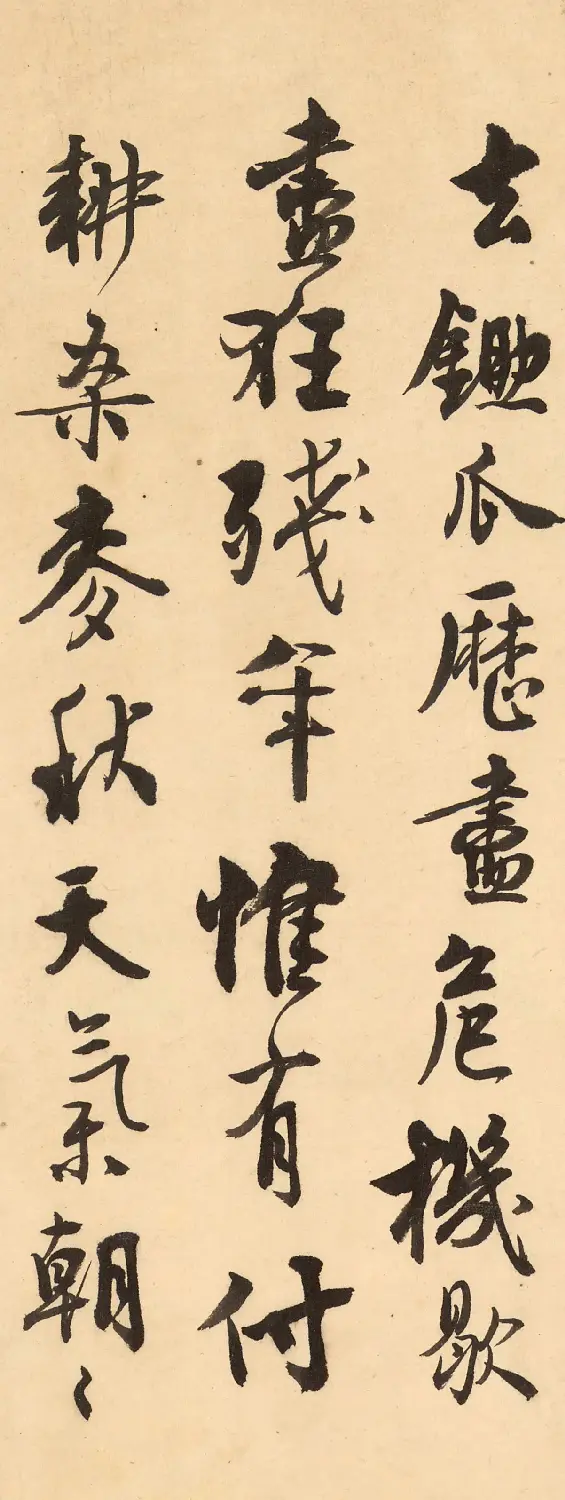 去鋤瓜歷盡危機歇
盡狂殘年惟有付
耕桑麥秋天氣朝〻